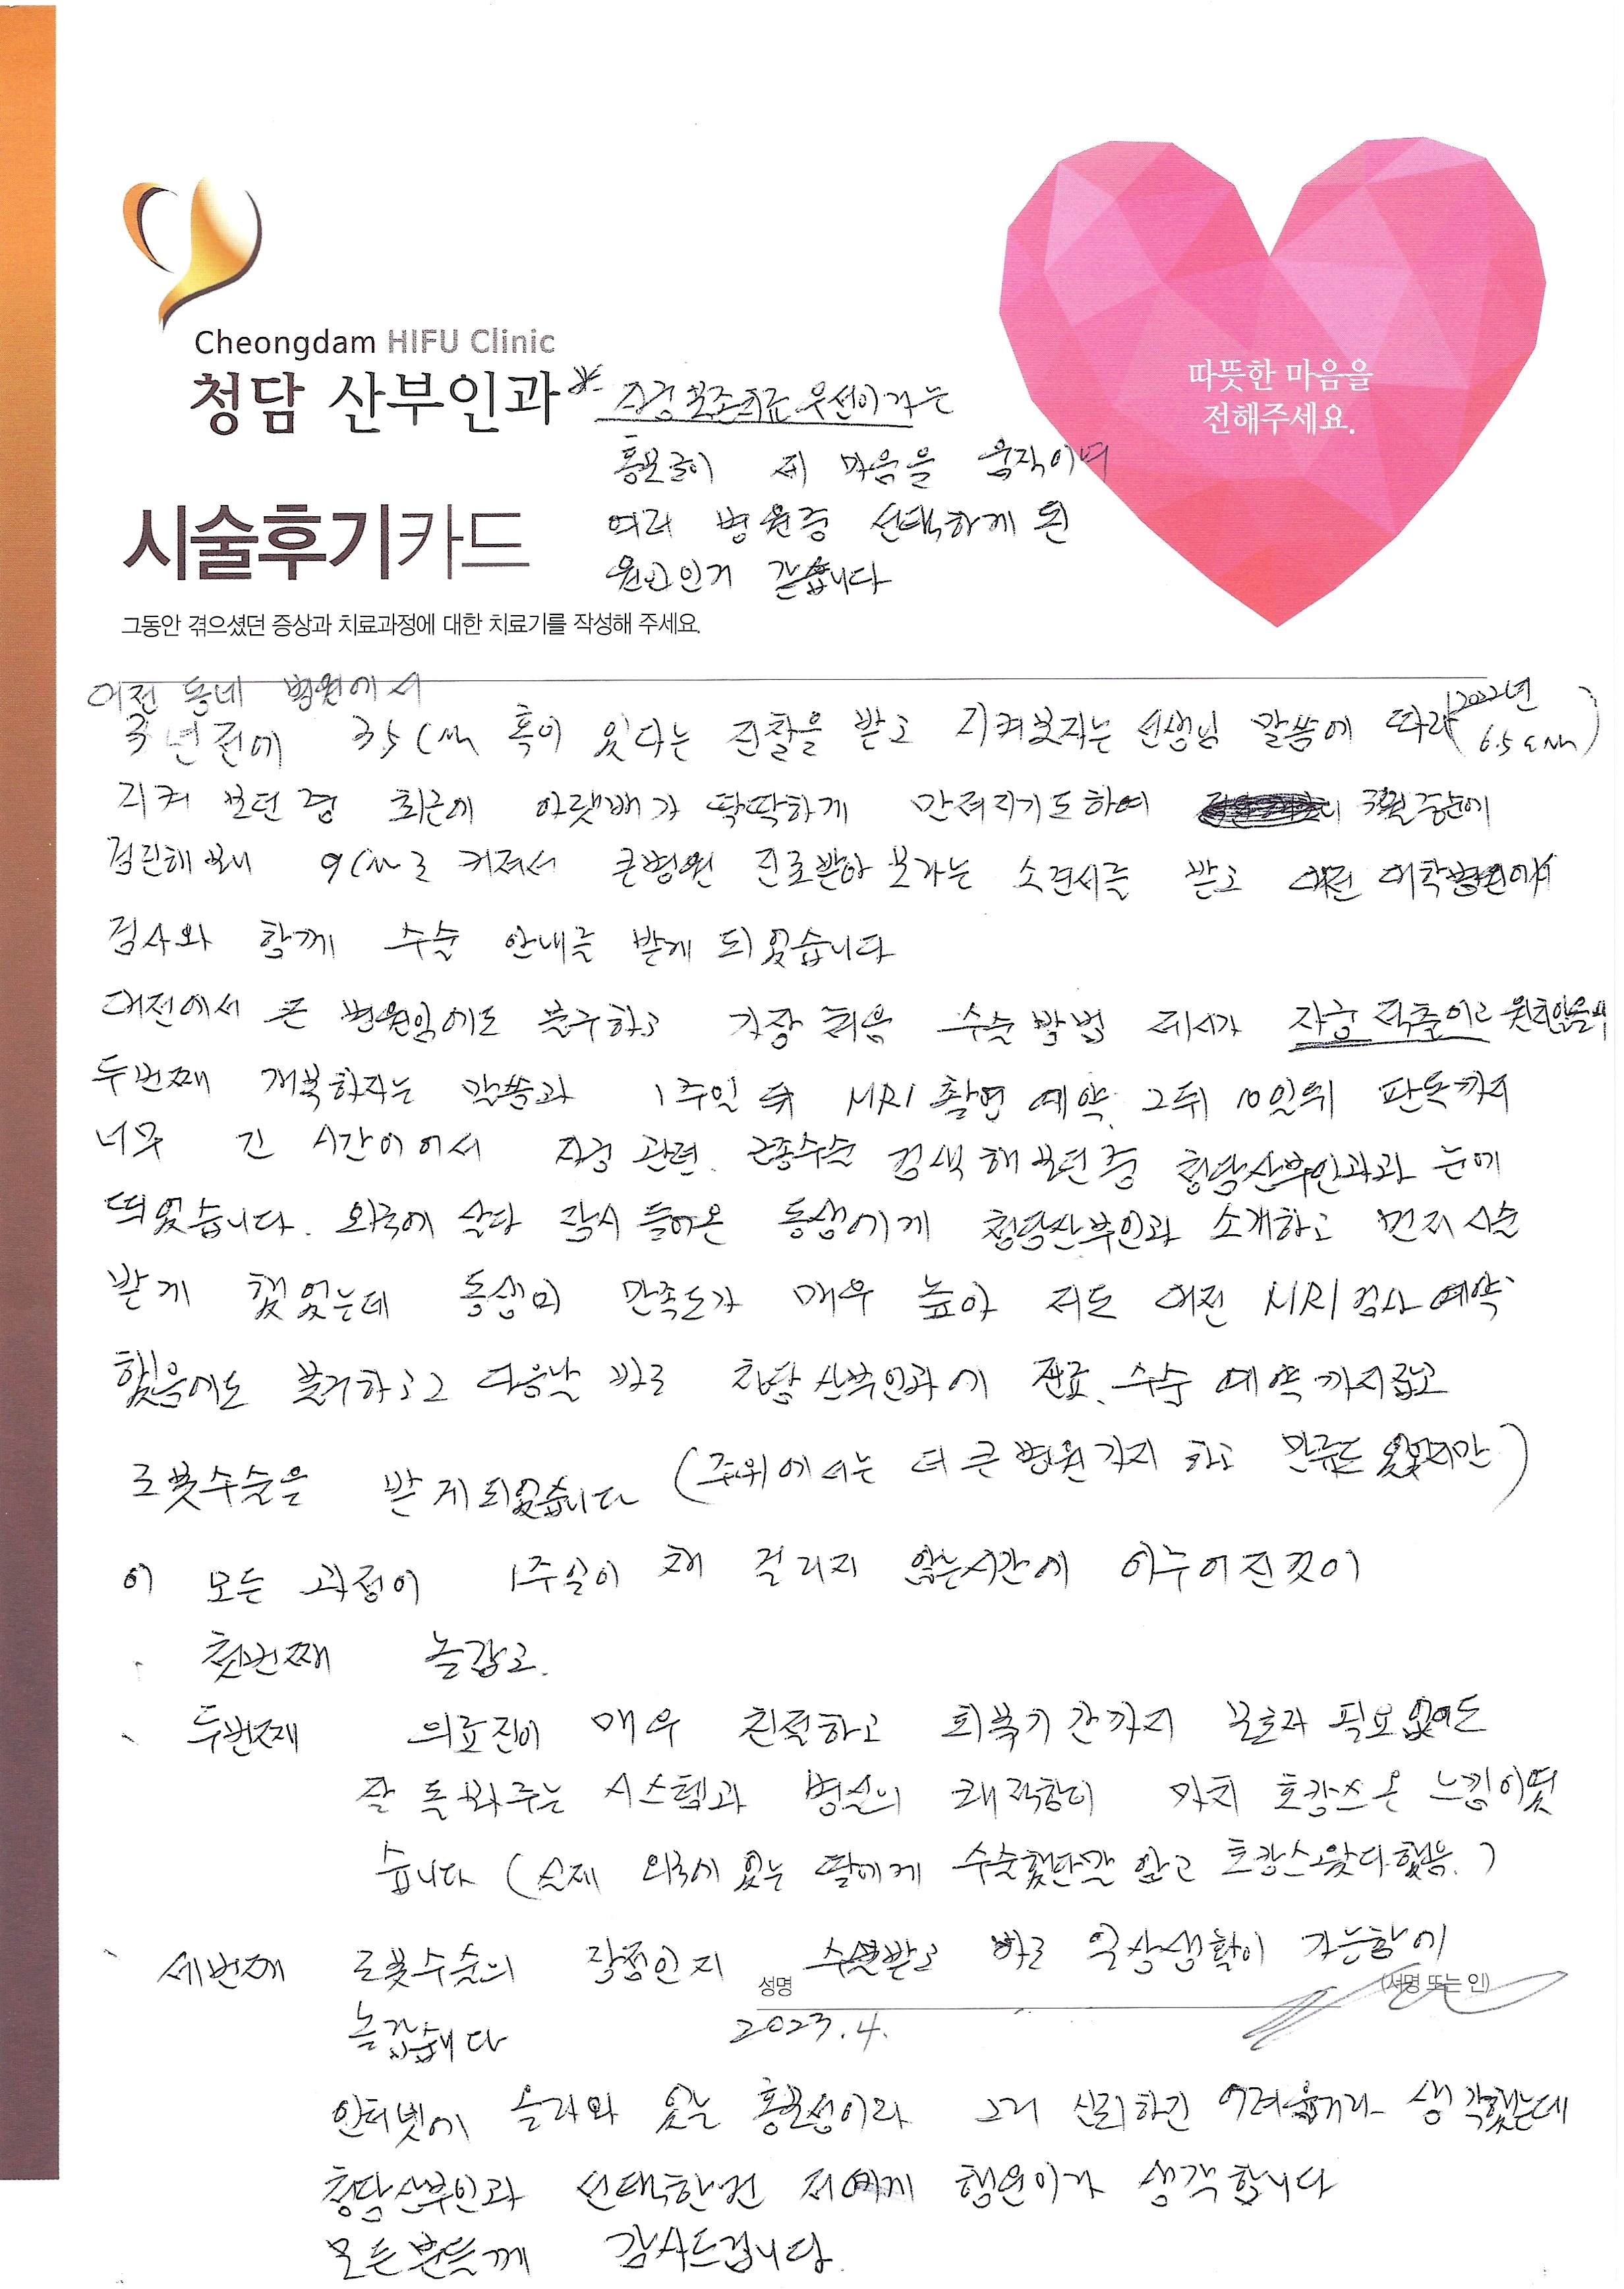 Cheongdam HIFU Clinic
청담 산부인과
따뜻한 마음을
전해주세요.
* 자궁보존치료 우선이라는
홍보글이 제 마음을 움직이며
여러 병원중 선택하게 된
원인인거 같습니다
시술후기카드
그동안 겪으셨던 증상과 치료과정에 대한 치료기를 작성해 주세요.
대전 동네 병원에서
3년전에 3.5cm 혹이 있다는 진찰을 받고 지켜보자는 선생님 말씀에 따라 (2022년 6.5cm)
지켜 보던 중 최근에 아랫배가 딱딱하게 만져지기도하여 3월 중순에
검진해보니 9cm로 커져서 큰병원 진료받아 보라는 소견서를 받고 대전 대학병원에서
검사와 함께 수술 안내를 받게 되었습니다
대전에서 큰 병원임에도 불구하고 가장 처음 수술 방법 제시가 자궁 적출이고 원치않을시
두번째 개복하자는 말씀과 1주일 뒤 MRI 촬영 예약. 그뒤 10일뒤 판독까지
너무 긴 시간이어서 자궁 관련. 근종수술 검색해 보던 중 청담산부인과가 눈에
띄었습니다. 외국에 살다 잠시 들어온 동생에게 청담산부인과 소개하고 먼저 시술
받게 했었는데 동생의 만족도가 매우 높아 저도 대전 MRI 검사 예약
했음에도 불구하고 다음날 바로 청담산부인과에 진료. 수술 예약까지잡고
로봇수술을 받게되었습니다 (주위에서는 더 큰병원가지 하고 만류도 있었지만)
이 모든 과정이 1주일이 채 걸리지 않는시간에 이루어진것이
첫번째 놀랍고.
두번째 의료진이 매우 친절하고 회복기간까지 보호자 필요없이도
잘 돌봐주는 시스템과 병실의 쾌적함이 마치 호캉스온 느낌이였
습니다 (실제 외국에 있는 딸에게 수술했단말 않고 호캉스왔다 했음.)
세번째 로봇수술의 장점인지 수술받고 바로 일상생활이 가능함에
성명
(서명 또는 인)
놀랍습니다
2023.4.
인터넷에 올라와 있는 홍보성이라 그리 신뢰하긴 어려울거라 생각했는데
청담산부인과 선택한건 저에게 행운이라 생각합니다
모든분들께 감사드립니다.